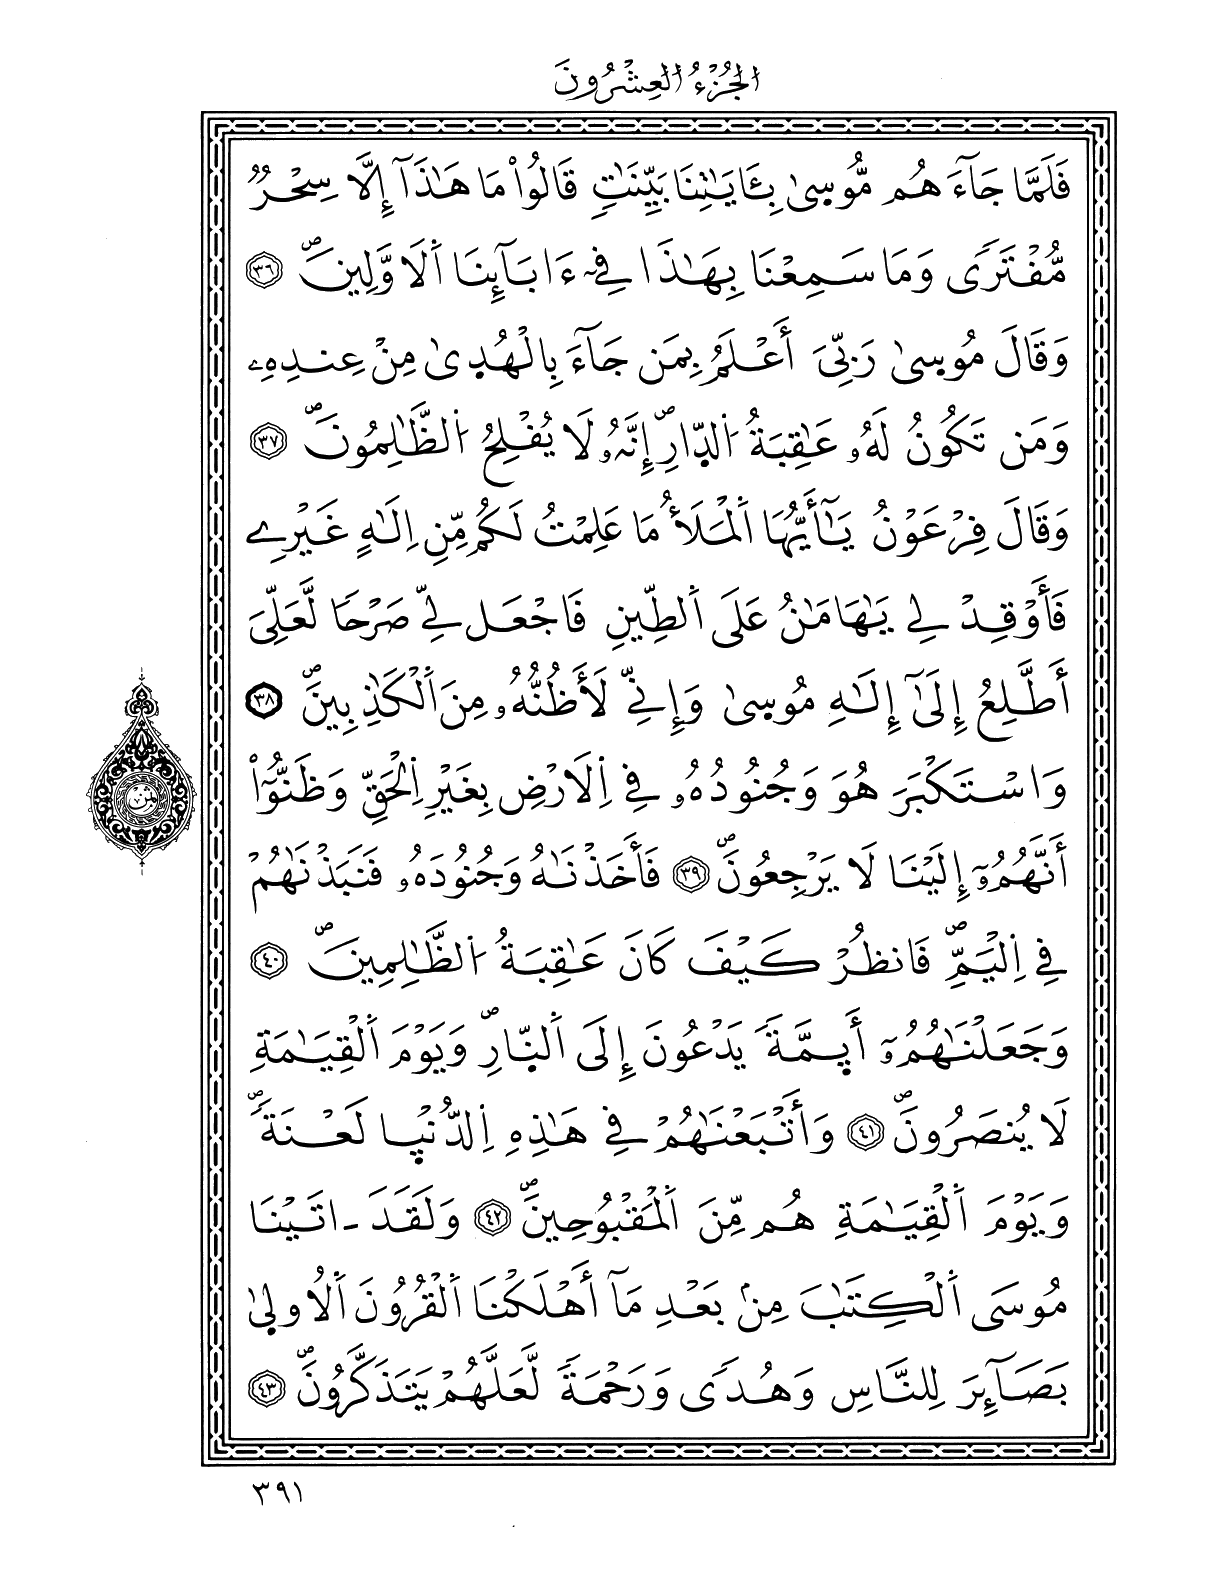 الجُزْءُ العِشْرُونَ
فَلَمَّا جَآءَهُم مُّوسۭىٰ بِـَٔايَٰتِنَا بَيِّنَٰتٖ قَالُواْ مَا هَٰذَآ إِلَّا سِحْرٞ
مُّفْتَرٗى وَمَا سَمِعْنَا بِهَٰذَا فِےٓ ءَابَآئِنَا اَ۬لَاوَّلِينَۖ ٣٦
وَقَالَ مُوسۭىٰ رَبِّيَ أَعْلَمُ بِمَن جَآءَ بِالْهُدۭىٰ مِنْ عِندِهِۦ
وَمَن تَكُونُ لَهُۥ عَٰقِبَةُ اُ۬لدّ۪ارِۖ إِنَّهُۥ لَا يُفْلِحُ اُ۬لظَّٰلِمُونَۖ ٣٧
وَقَالَ فِرْعَوْنُ يَٰٓأَيُّهَا اَ۬لْمَلَأُ مَا عَلِمْتُ لَكُم مِّنِ اِلَٰهٍ غَيْرِے
فَأَوْقِدْ لِے يَٰهَٰمَٰنُ عَلَى اَ۬لطِّينِ فَاجْعَل لِّے صَرْحاٗ لَّعَلِّيَ
أَطَّلِعُ إِلَىٰٓ إِلَٰهِ مُوسۭىٰ وَإِنِّے لَأَظُنُّهُۥ مِنَ اَ۬لْكَٰذِبِينَۖ ٣٨
وَاسْتَكْبَرَ هُوَ وَجُنُودُهُۥ فِے اِ۬لَارْضِ بِغَيْرِ اِ۬لْحَقِّ وَظَنُّوٓاْ
أَنَّهُمُۥٓ إِلَيْنَا لَا يَرْجِعُونَۖ ٣٩ فَأَخَذْنَٰهُ وَجُنُودَهُۥ فَنَبَذْنَٰهُمْ
فِے اِ۬لْيَمِّۖ فَانظُرْ كَيْفَ كَانَ عَٰقِبَةُ اُ۬لظَّٰلِمِينَۖ ٤٠
وَجَعَلْنَٰهُمُۥٓ أَي۪مَّةٗ يَدْعُونَ إِلَى اَ۬لنّ۪ارِۖ وَيَوْمَ اَ۬لْقِيَٰمَةِ
لَا يُنصَرُونَۖ ٤١ وَأَتْبَعْنَٰهُمْ فِے هَٰذِهِ اِ۬لدُّنْي۪ا لَعْنَةٗۖ
وَيَوْمَ اَ۬لْقِيَٰمَةِ هُم مِّنَ اَ۬لْمَقْبُوحِينَۖ ٤٢ وَلَقَدَ ـ اتَيْنَا
مُوسَى اَ۬لْكِتَٰبَ مِنۢ بَعْدِ مَآ أَهْلَكْنَا اَ۬لْقُرُونَ اَ۬لُاولۭىٰ
بَصَآئِرَ لِلنَّاسِ وَهُدٗى وَرَحْمَةٗ لَّعَلَّهُمْ يَتَذَكَّرُونَۖ ٤٣
ثمن
٣٩١